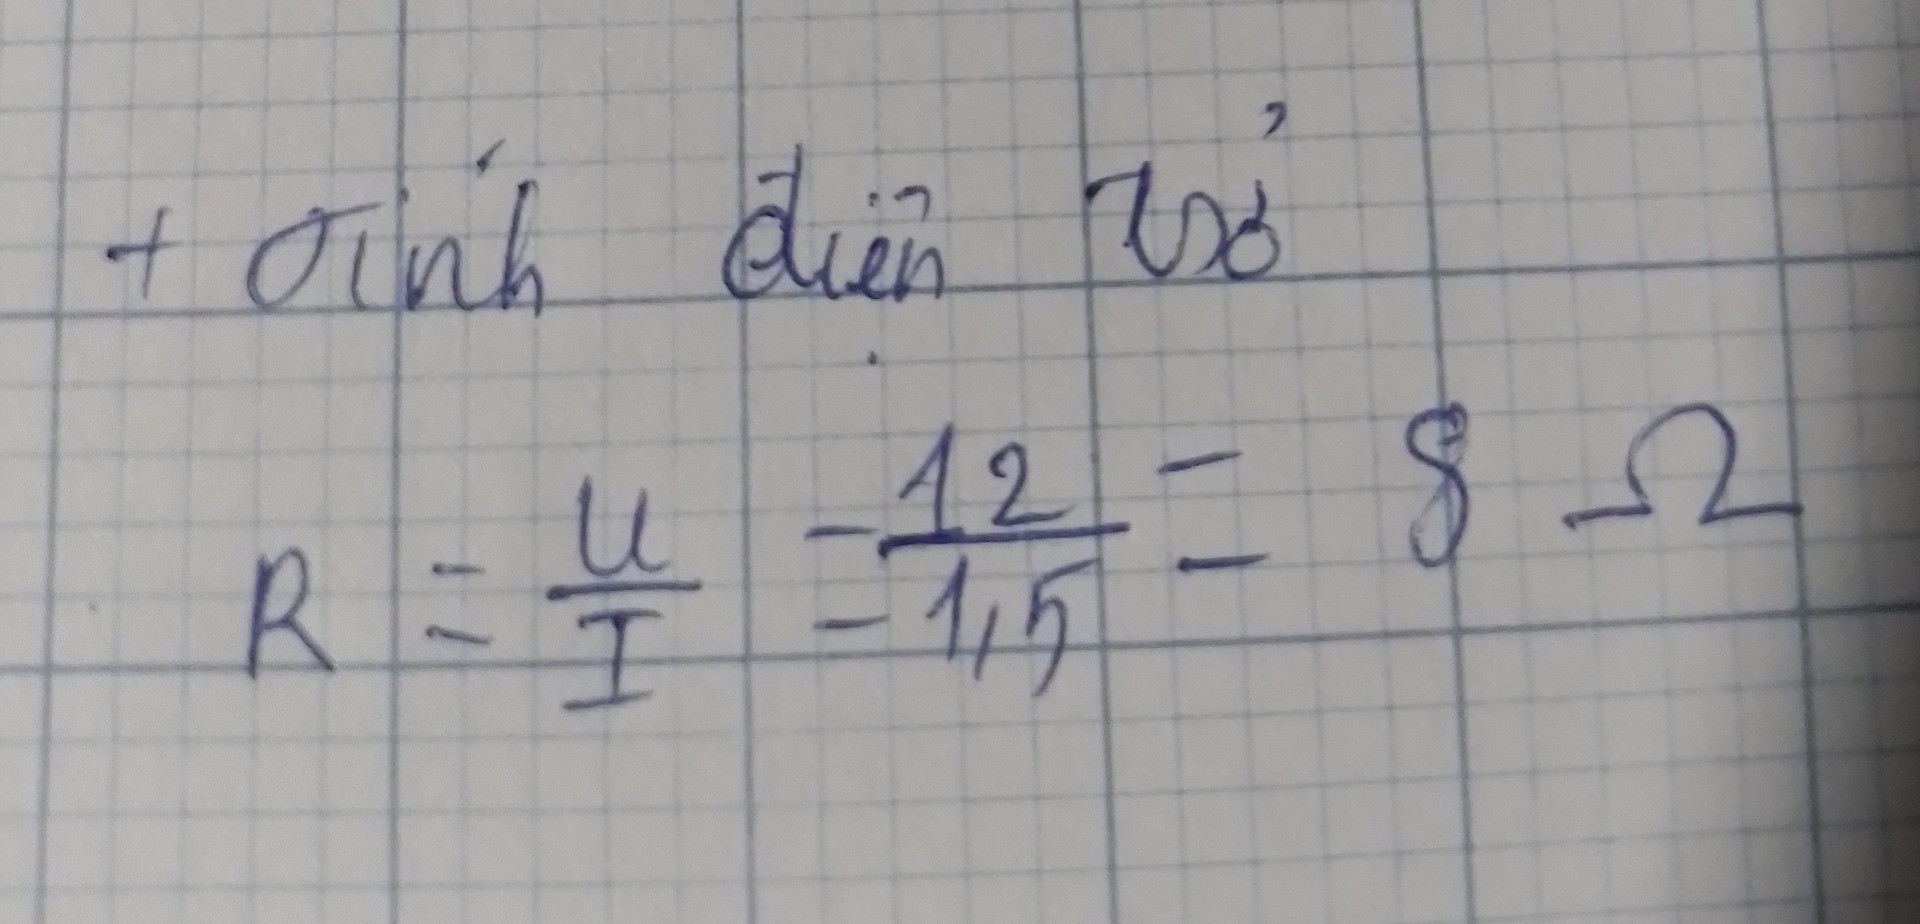 + Tính điện trở
R = U/I = 12/1,5 = 8 Ω